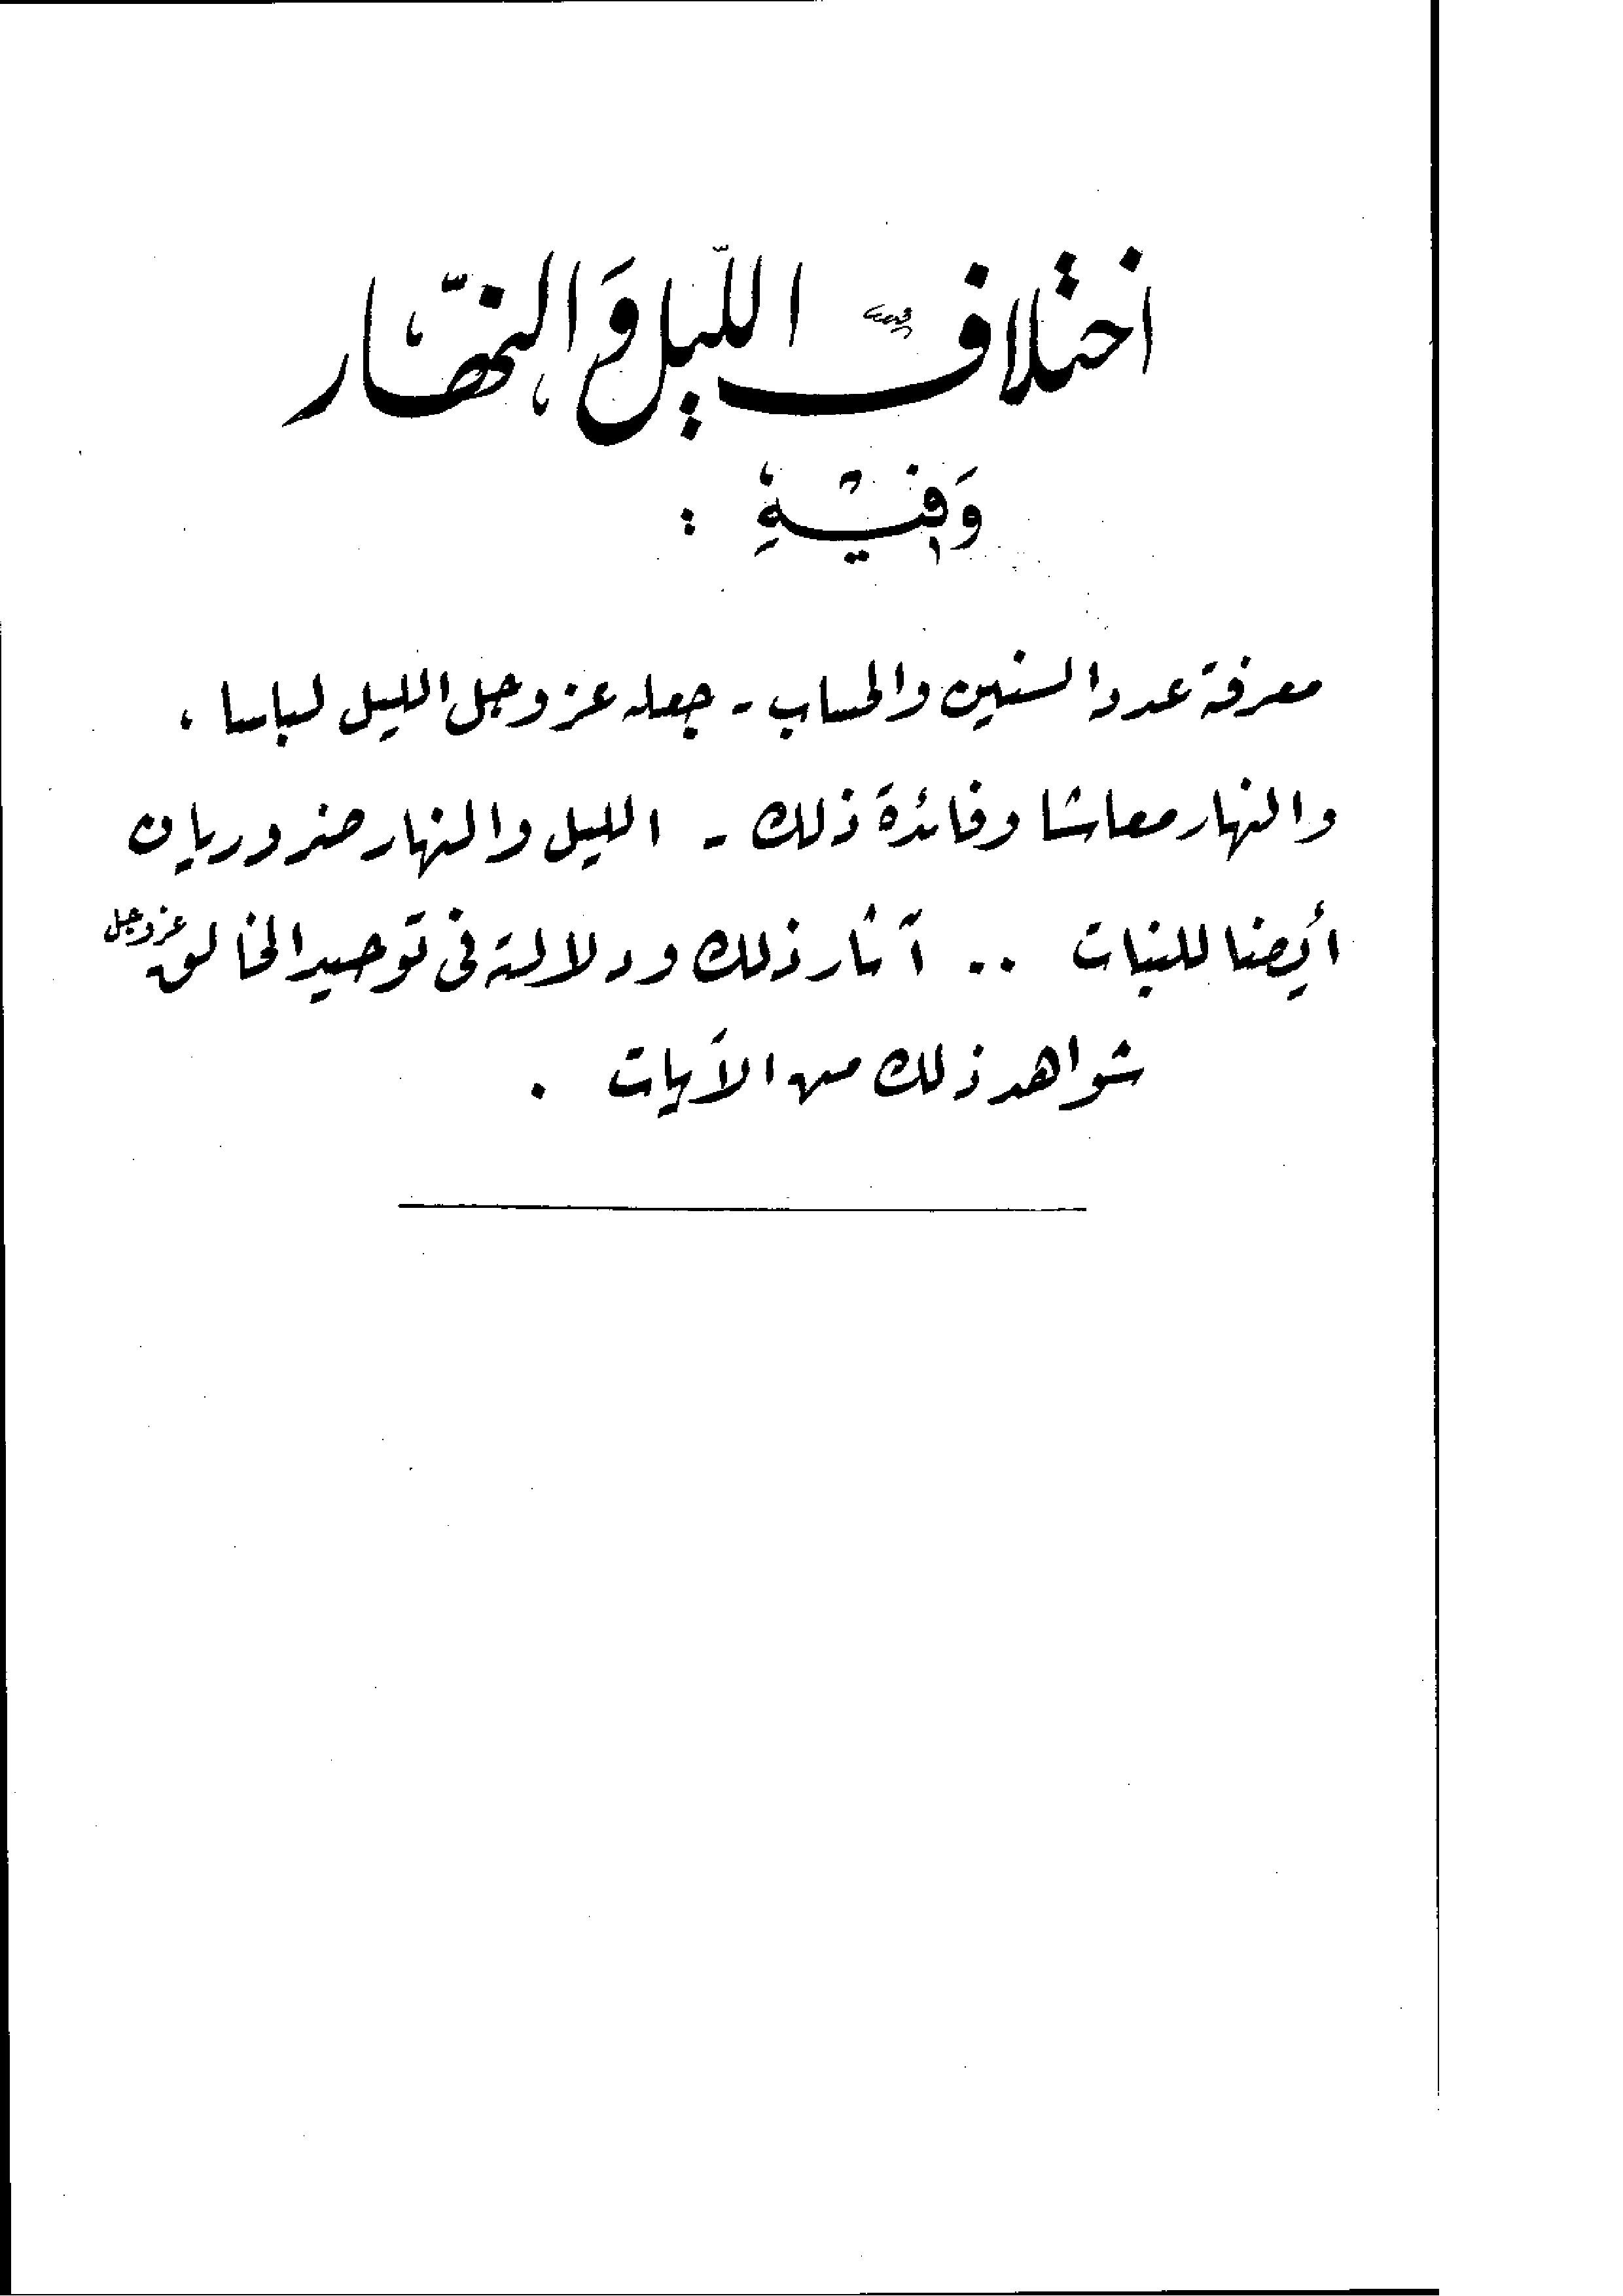 اختلاف الليل وَالنهّار
وَفيهِ :
معرفة عدد السنين والحساب - جعله عز وجل الليل لباسا ،
والنهار معاشا وفائدة ذلك - الليل والنهار ضروريان
أيضا للنبات .. آثار ذلك ودلالته فى توحيد الخالق عز وجل
شواهد ذلك من الآيات .